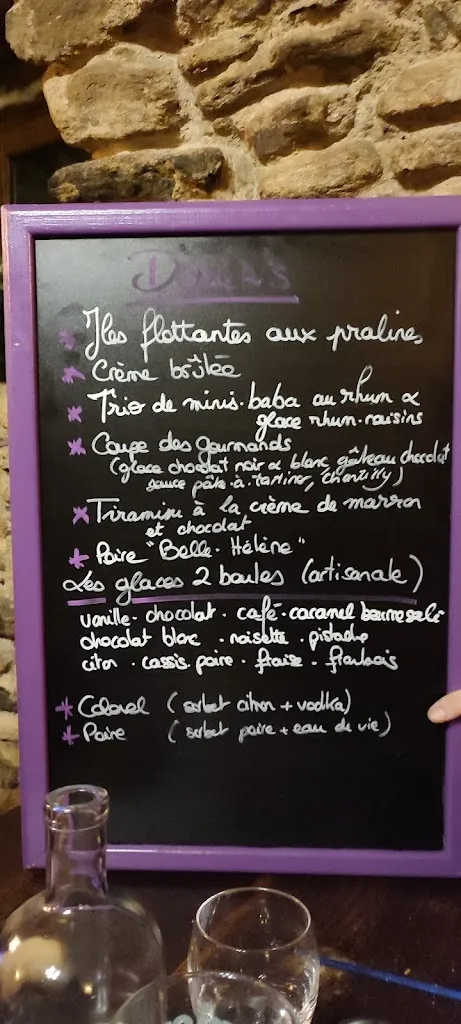 Iles flottantes aux pralines
* Crème brûlée
* Trio de minis-baba au rhum &
glace rhum-raisins
* Coupe des gourmands
(glace chocolat noir & blanc, gâteau chocolat
sauce pâte-à-tartiner, chantilly)
* Tiramisu à la crème de marron
et chocolat
* Poire "Belle-Hélène"
Les glaces 2 boules (artisanale)
vanille - chocolat - café - caramel beurre salé
chocolat blanc - noisette - pistache
citron - cassis poire - fraise - framboise
* Colonel (sorbet citron + vodka)
* Poire (sorbet poire + eau de vie)